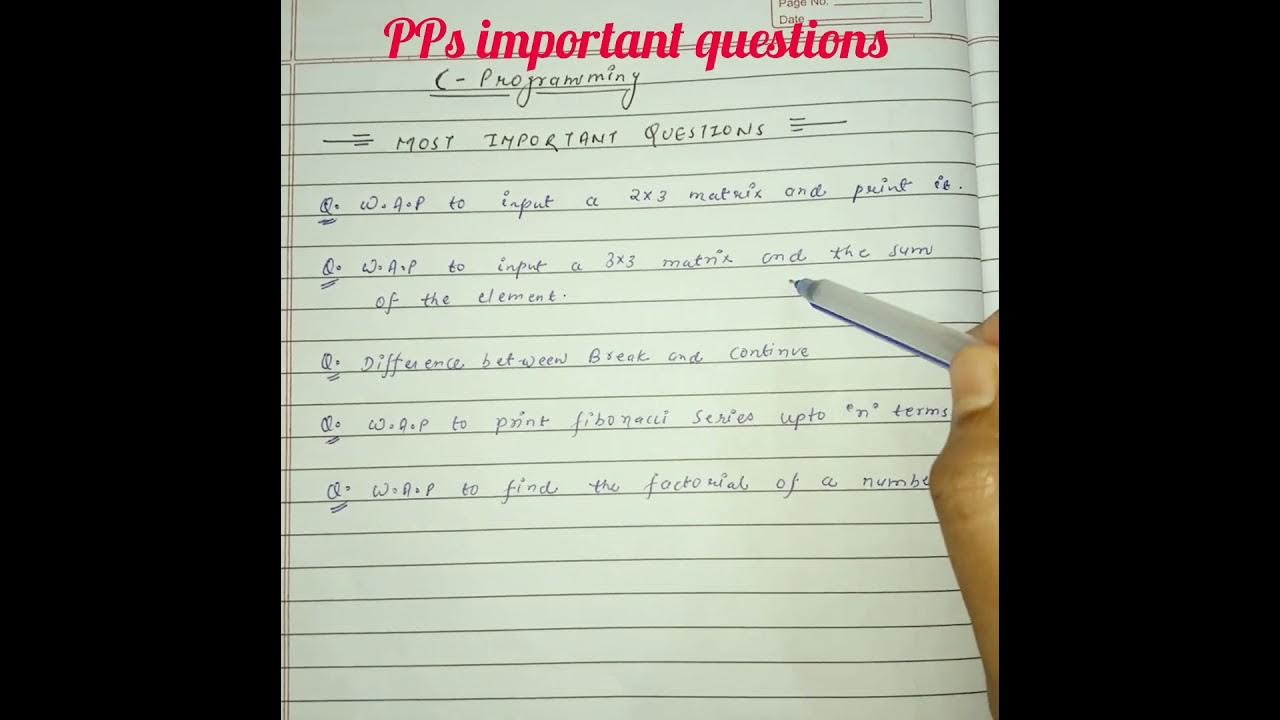 Page No.
Date
PPs important questions
C - Programming
MOST IMPORTANT QUESTIONS
Q. W.A.P to input a 2x3 matrix and print it.
Q. W.A.P to input a 3x3 matrix and the sum
of the element.
Q. Difference between Break and Continue
Q. W.A.P to print fibonacci series upto "n" terms
Q. W.A.P to find the factorial of a numbe